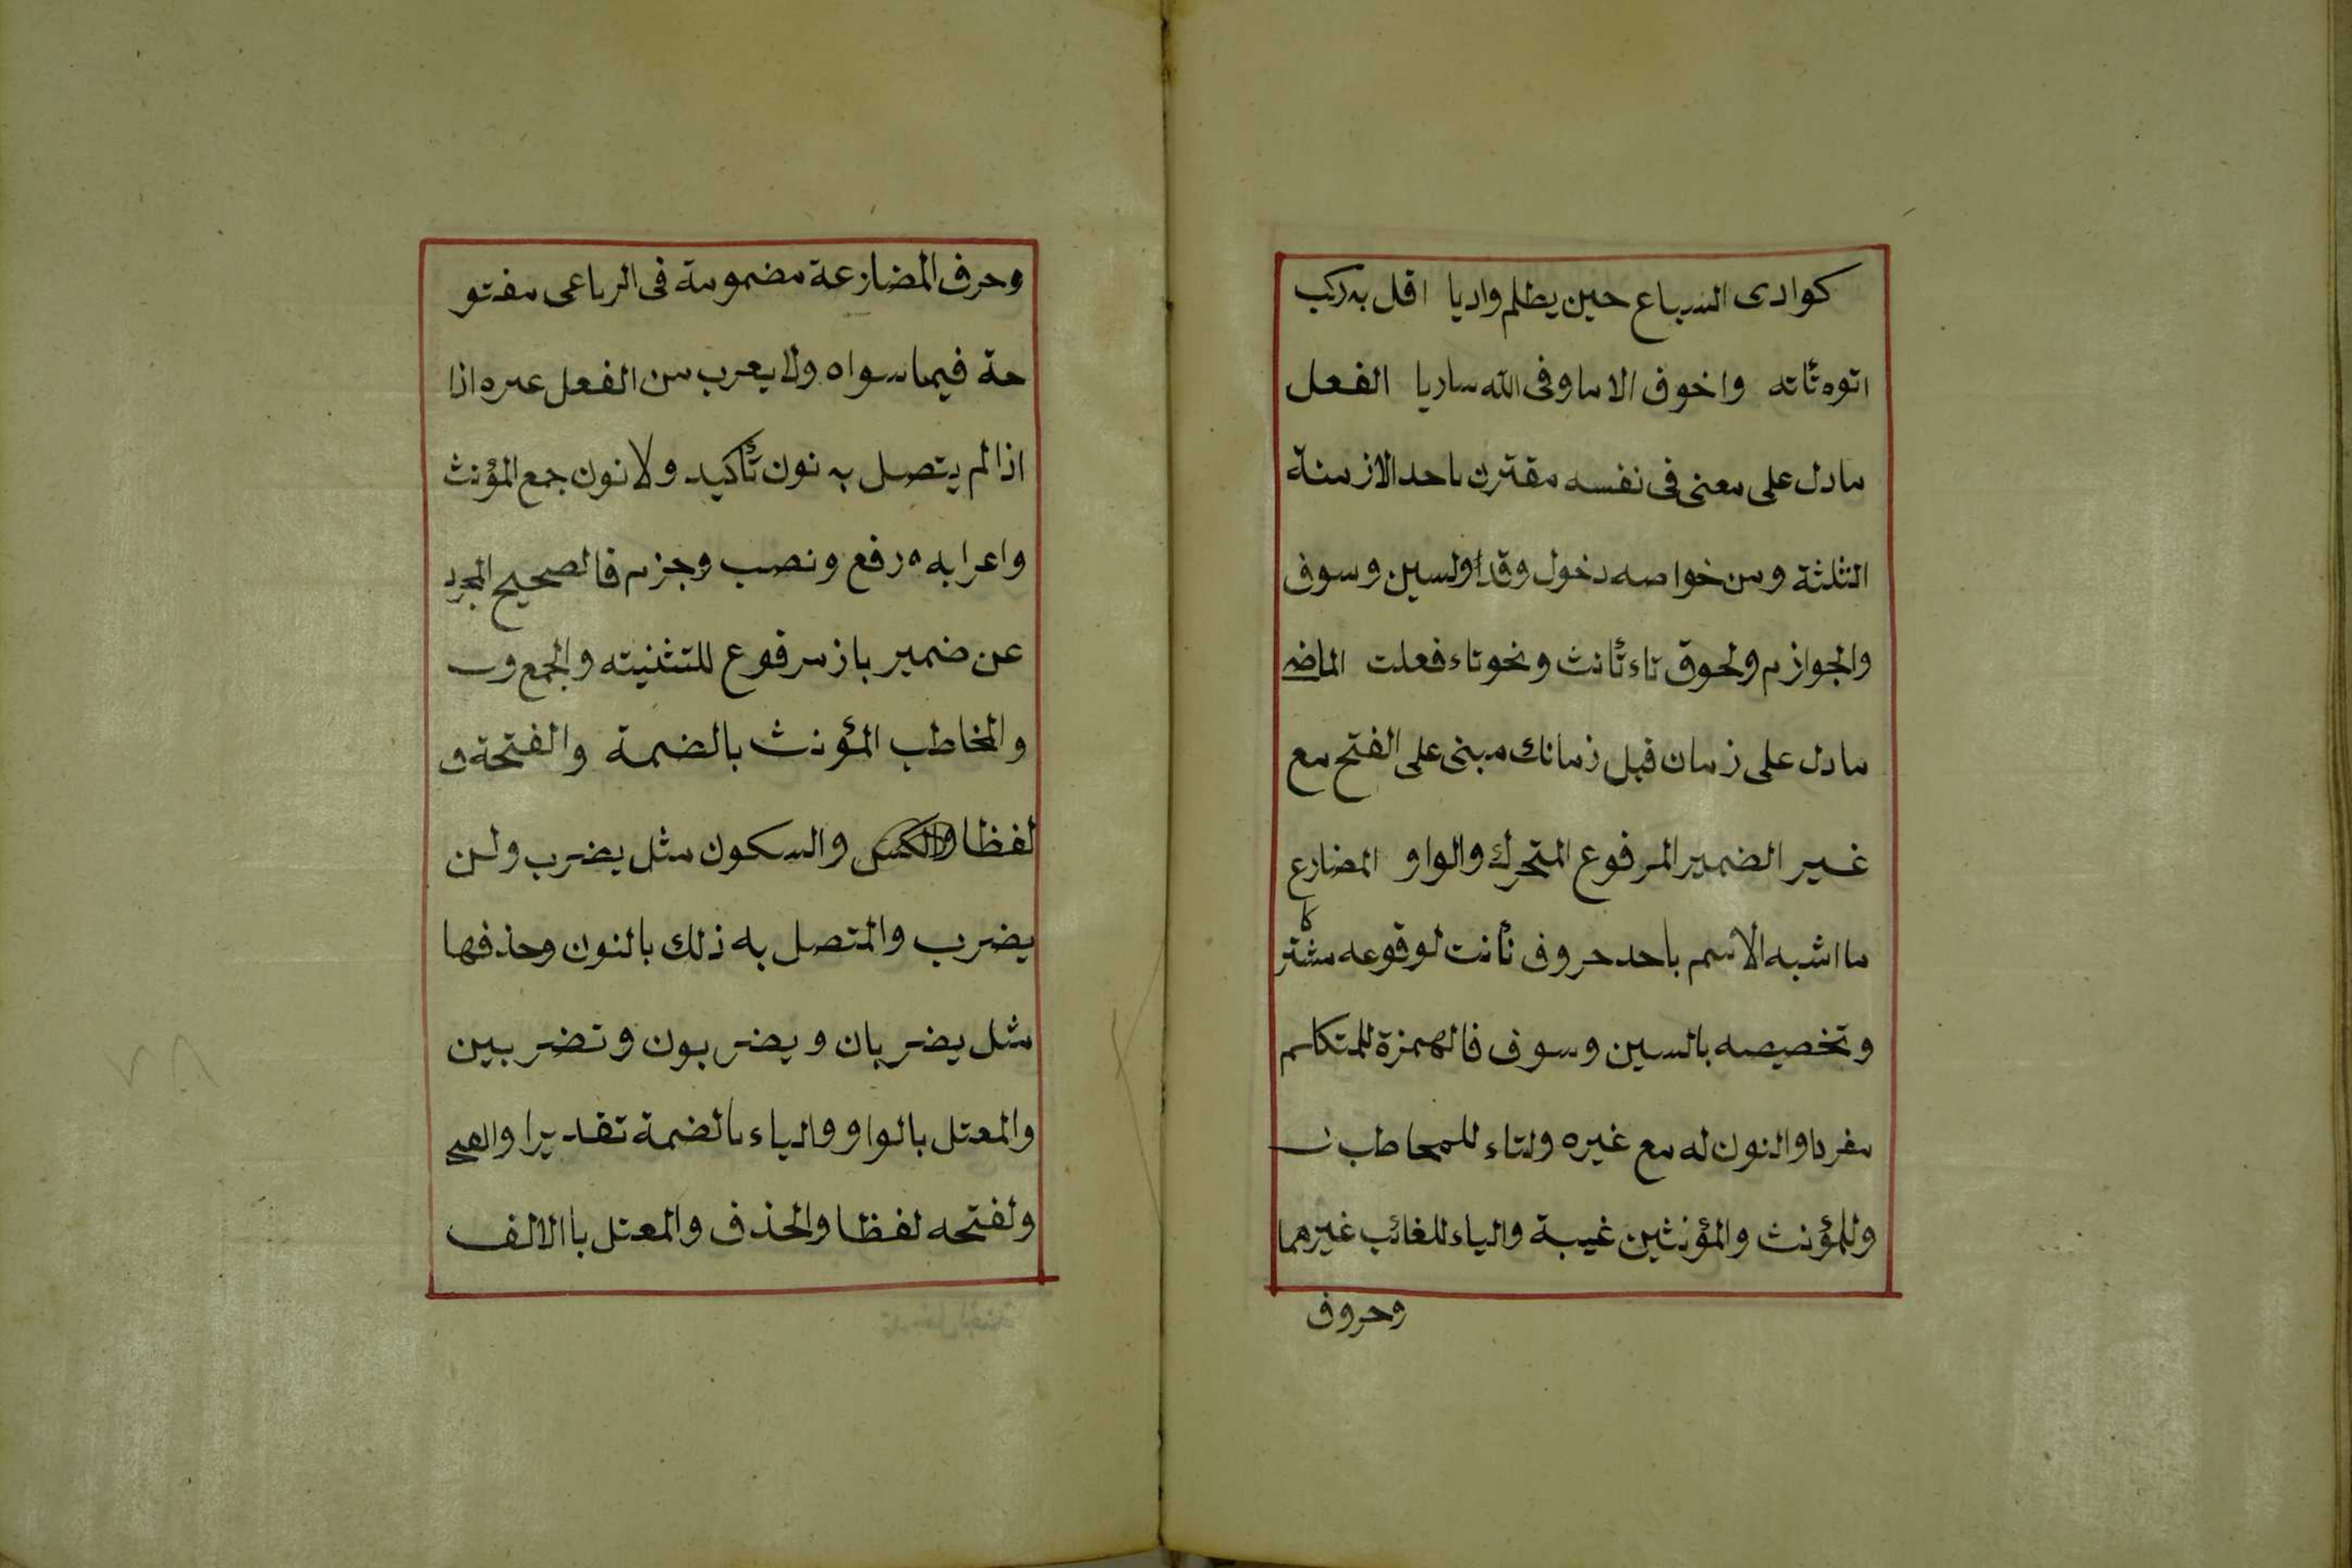 كوادى السباع حين يظلم واديا اقل به ركب
اتوه تأته واخوف الا ما وفى الله ساريا الفعل
ما دل على معنى فى نفسه مقترن باحد الازمنة
الثلثة ومن خواصه دخول وقد اولسين وسوف
والجوازم ولحوق تاء تأنث ونحو تاء فعلت الماضى
ما دل على زمان قبل زمانك مبنى على الفتح مع
غير الضمير المرفوع المتحرك والواو المضارع
ما اشبه الاسم باحد حروف نأنت لوقوعه مشتركا
وتخصيصه بالسين وسوف فالهمزة للمتكلم
مفردا والنون له مع غيره ولتاء للمخاطب
وللمؤنث والمؤنثين غيبة والياء للغائب غيرهما
وحروف
وحرف المضارعة مضمومة فى الرباعى مفتو
حة فيما سواه ولا يعرب من الفعل غيره اذا
اذا لم يتصل به نون تأكيد ولا نون جمع المؤنث
واعرابه رفع ونصب وجزم فالصحيح المجرد
عن ضمير بارز مرفوع للتثنيته والجمع و
والمخاطب المؤنث بالضمة والفتحة و
لفظا والكسر والسكون مثل يضرب ولن
يضرب والمتصل به ذلك بالنون وحذفها
مثل يضربان ويضربون وتضربين
والمعتل بالواو والياء بالضمة تقديرا
ولفتحه لفظا والحذف والمعتل باالالف